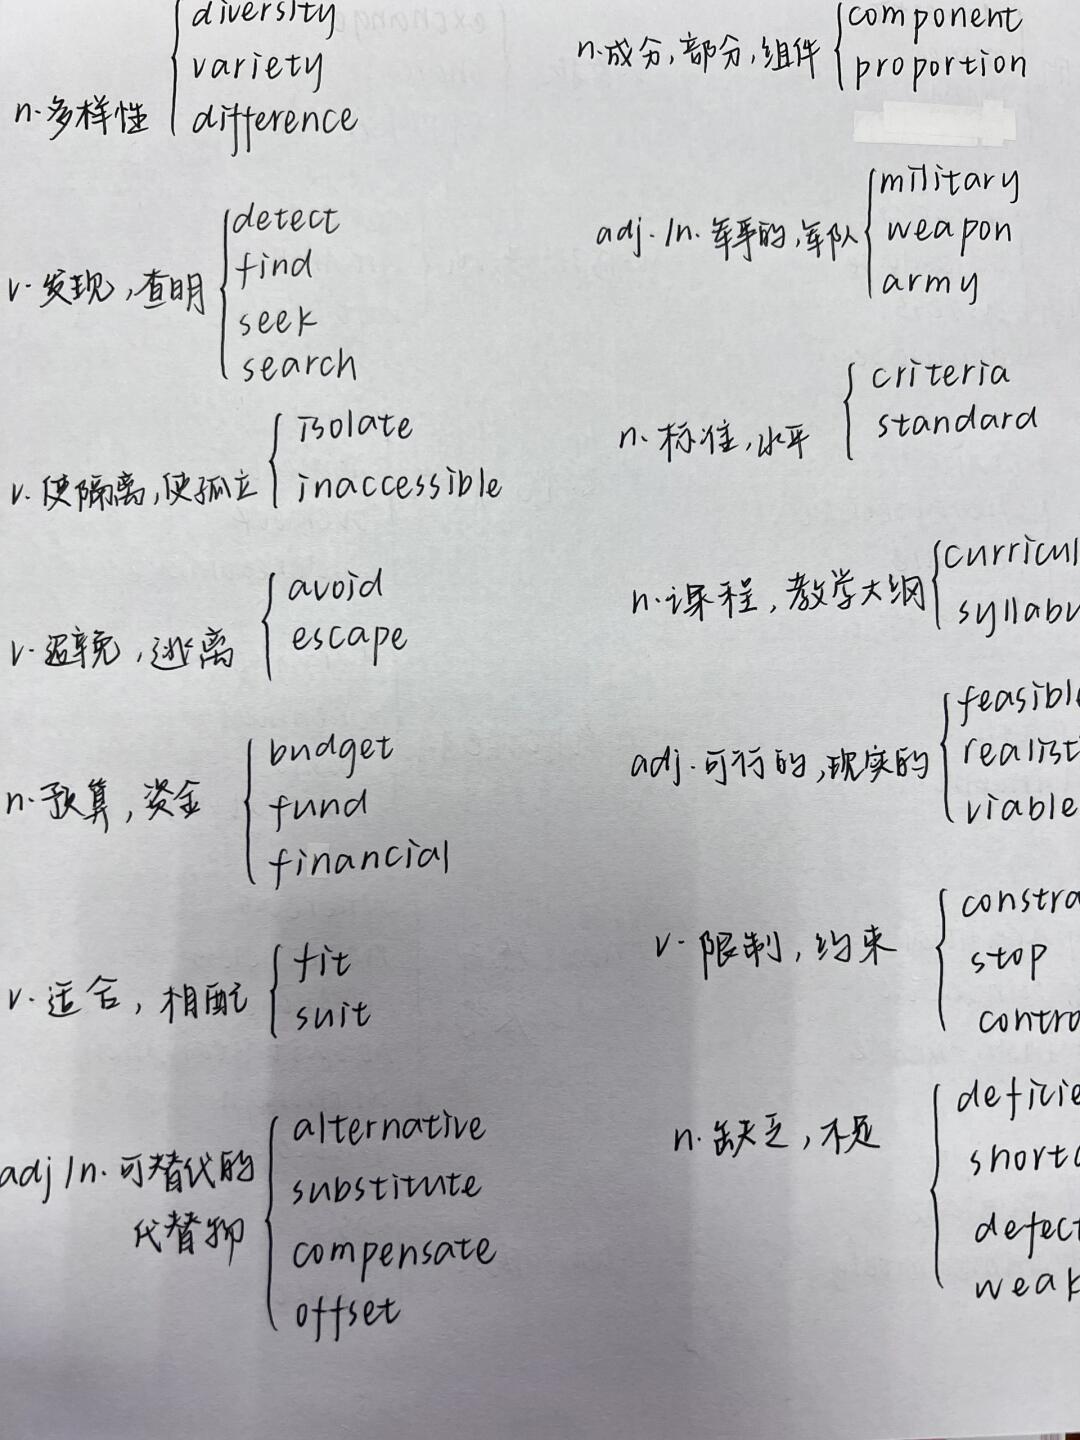 diversity
variety
n. 多样性
difference
v. 发现, 查明
detect
find
seek
search
v. 使隔离, 使孤立
isolate
inaccessible
v. 避免, 逃离
avoid
escape
n. 预算, 资金
budget
fund
financial
v. 适合, 相配
fit
suit
adj/n. 可替代的
代替物
alternative
substitute
compensate
offset
n. 成分, 部分, 组件
component
proportion
adj./n. 军事的, 军队
military
weapon
army
n. 标准, 水平
criteria
standard
n. 课程, 教学大纲
curricul
syllabu
adj. 可行的, 现实的
feasible
realisti
viable
v. 限制, 约束
constra
stop
contro
n. 缺乏, 不足
deficie
shortc
defect
weak